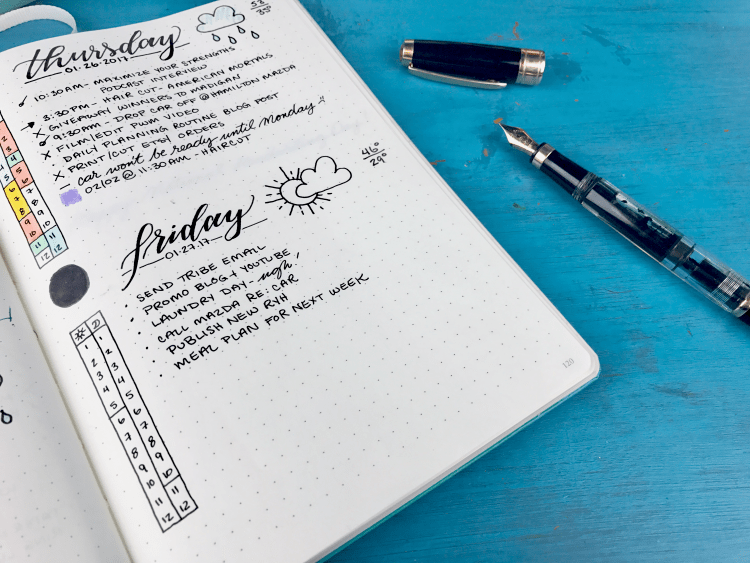 thursday
01.26.2017
10:30AM- MAXIMIZE YOUR STRENGTHS
PODCAST INTERVIEW
3:30PM - HAIR CUT- AMERICAN MORTALS
X GIVEAWAY WINNERS TO MADIGAN
9:30AM - DROP CAR OFF @HAMILTON MAZDA
X FILM/EDIT PWM VIDEO
X DAILY PLANNING ROUTINE BLOG POST
X PRINT/CUT ETSY ORDERS
- car won't be ready until Monday
02/02 @ 11:30AM - HAIRCUT
46°
29°
friday
01.27.17
• SEND TRIBE EMAIL
• PROMO BLOG + YOUTUBE
• LAUNDRY DAY - ugh!
• CALL MAZDA RE: CAR
• PUBLISH NEW RYH
• MEAL PLAN FOR NEXT WEEK
1 1
2 2
3 3
4 4
5 5
6 6
7 7
8 8
9 9
10 10
11 11
12 12
120